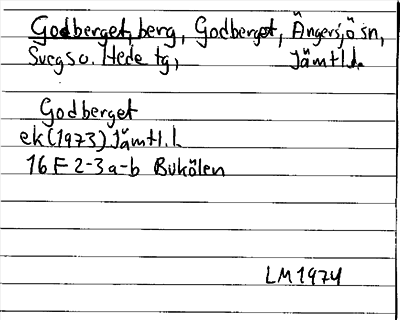 Godberget, berg, Godberget, Ängersjö sn,
Svegs o. Hede tg, Jämtl.l.
Godberget
ek (1973) Jämtl.l
16 F 2-3 a-b Bukölen
LM 1974